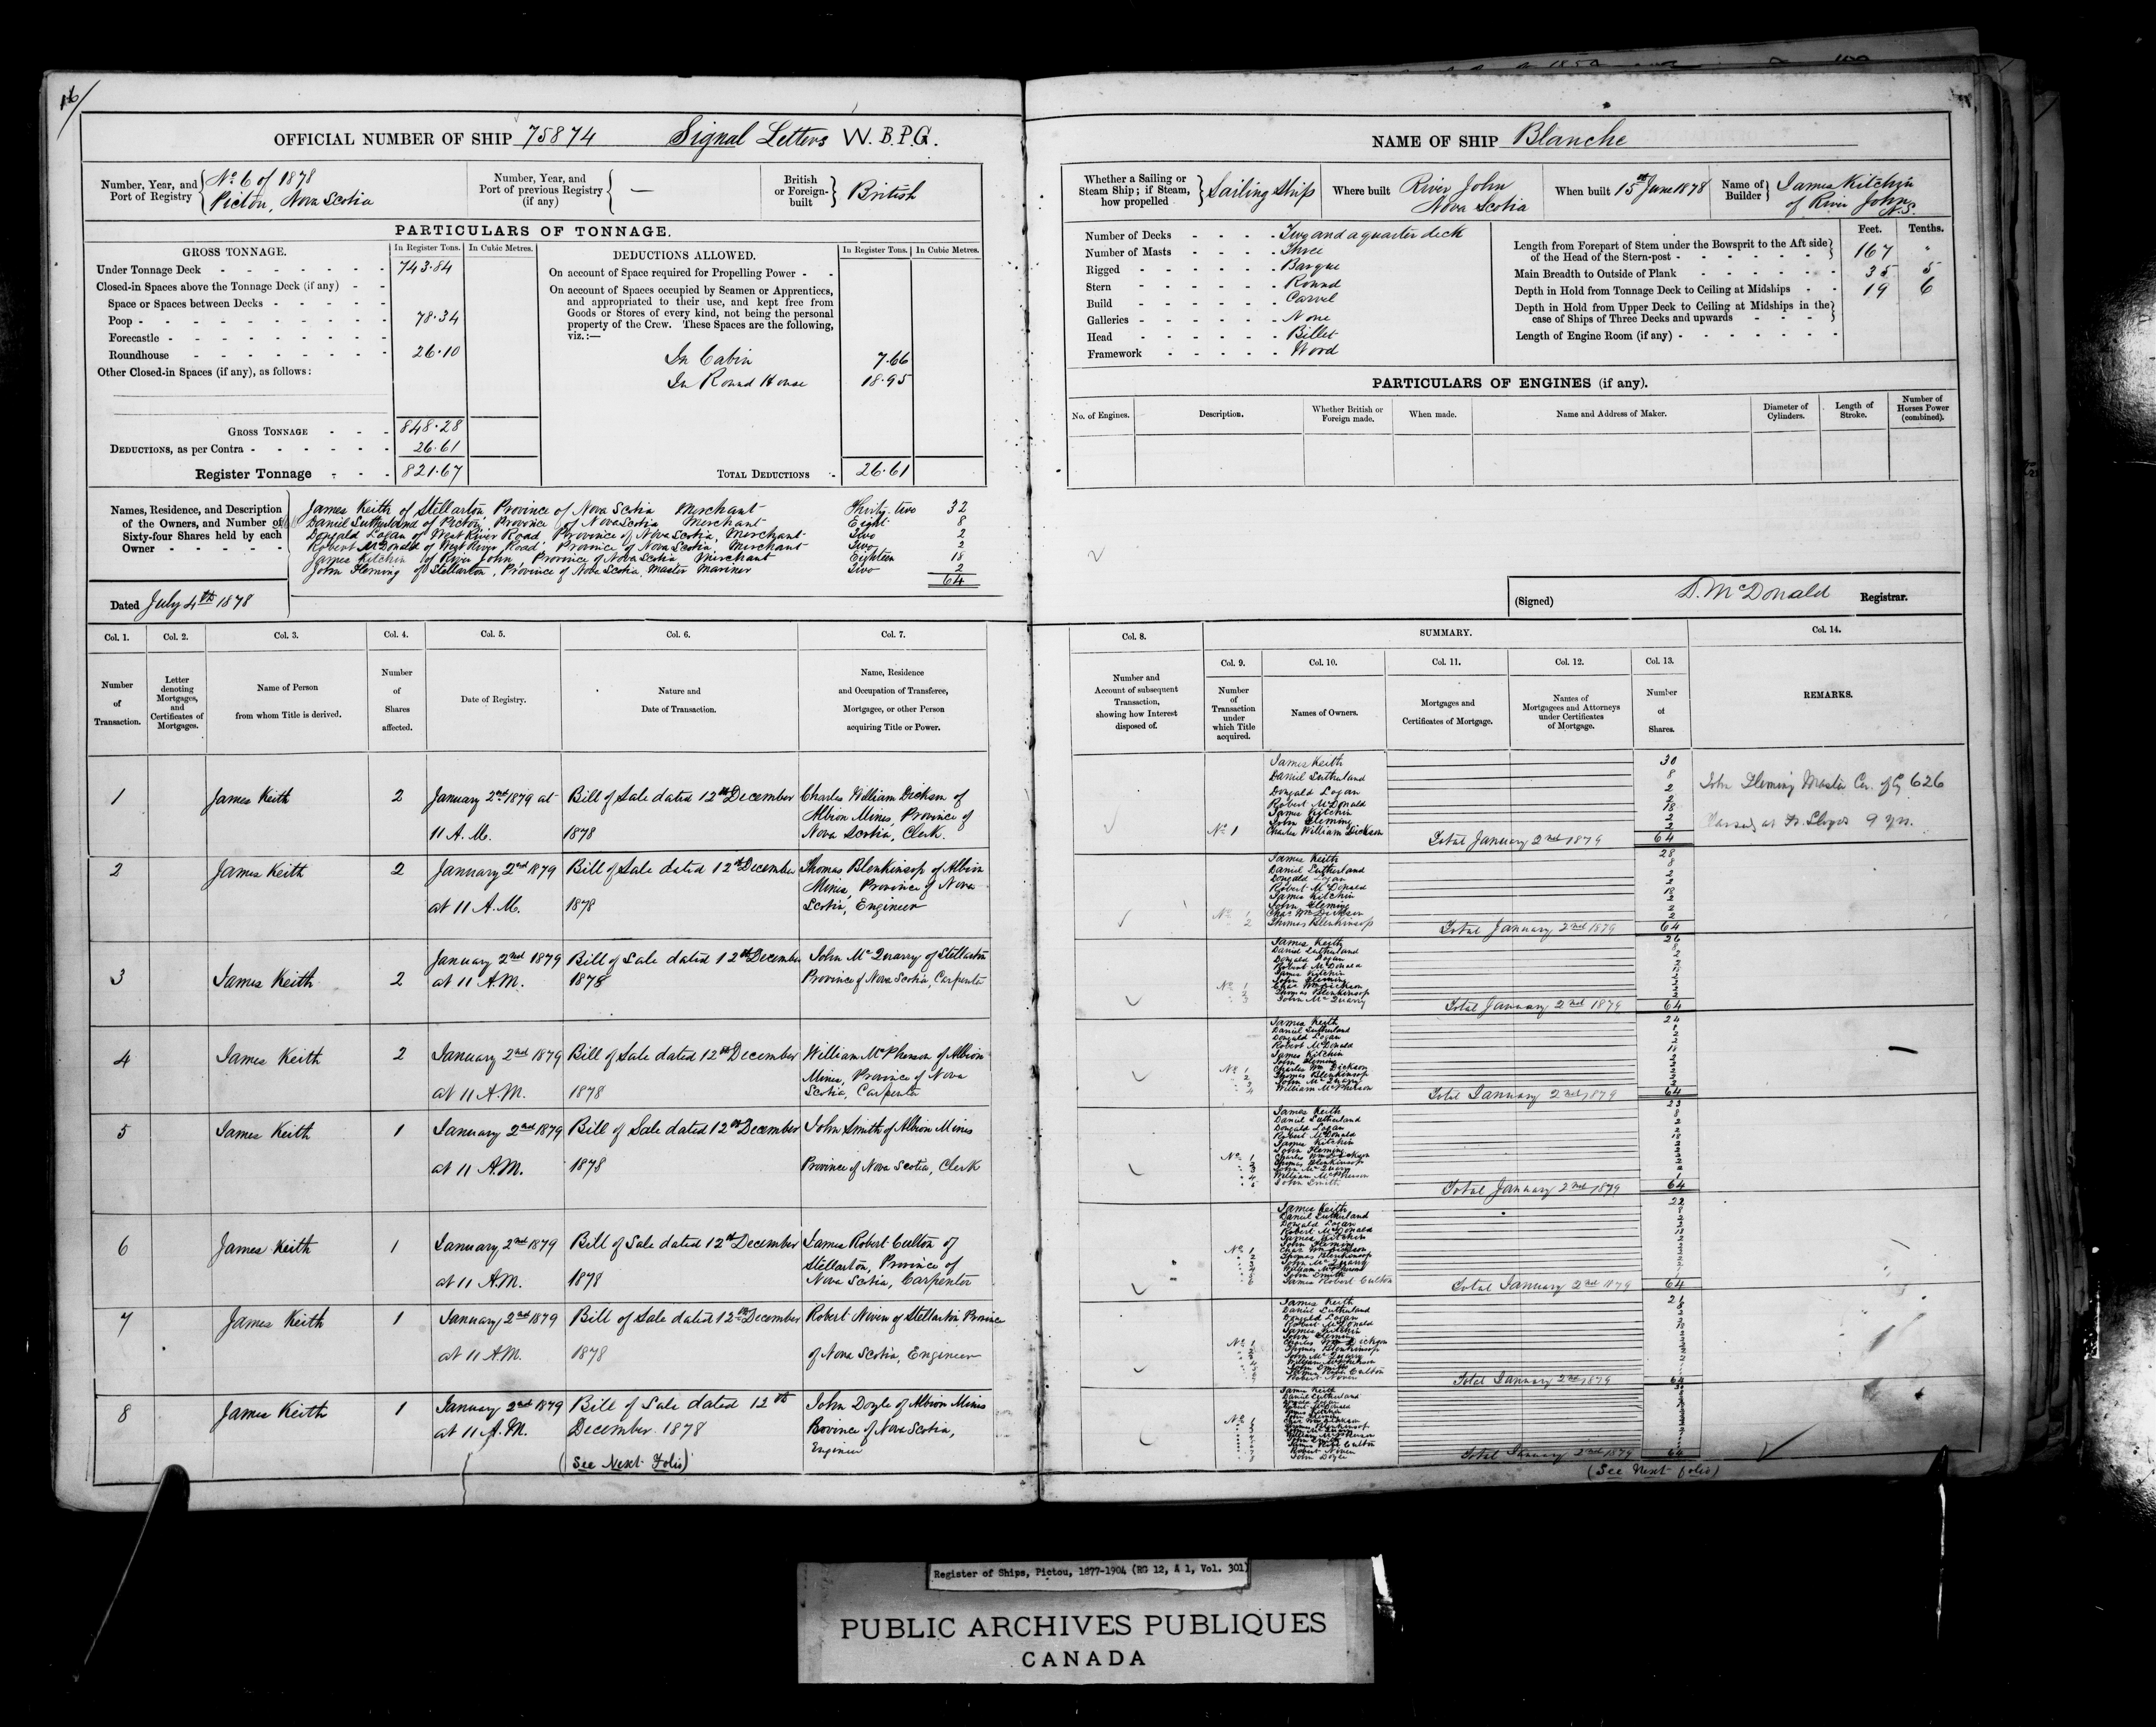 16/
OFFICIAL NUMBER OF SHIP 75874 Signal Letters W.B.P.G.
Number, Year, and Port of Registry { No 6 of 1878 Pictou, Nova Scotia
Number, Year, and Port of previous Registry (if any) { —
British or Foreign-built } British
PARTICULARS OF TONNAGE.
GROSS TONNAGE. In Register Tons. In Cubic Metres.
Under Tonnage Deck 743.84
Closed-in Spaces above the Tonnage Deck (if any)
Space or Spaces between Decks
Poop 78.34
Forecastle
Roundhouse 26.10
Other Closed-in Spaces (if any), as follows:
GROSS TONNAGE 848.28
DEDUCTIONS, as per Contra 26.61
Register Tonnage 821.67
DEDUCTIONS ALLOWED. In Register Tons. In Cubic Metres.
On account of Space required for Propelling Power
On account of Spaces occupied by Seamen or Apprentices,
and appropriated to their use, and kept free from
Goods or Stores of every kind, not being the personal
property of the Crew. These Spaces are the following,
viz.:—
In Cabin 7.66
In Round House 18.95
TOTAL DEDUCTIONS 26.61
Names, Residence, and Description of the Owners, and Number of Sixty-four Shares held by each Owner
James Keith of Stellarton, Province of Nova Scotia Merchant Thirty two 32
Daniel Sutherland of Pictou, Province of Nova Scotia Merchant Eight 8
Donald Logan of West River Road, Province of Nova Scotia, Merchant Two 2
Robert McDonald of West River Road, Province of Nova Scotia, Merchant Two 2
James Kitchin of River John, Province of Nova Scotia, Merchant Eighteen 18
John Fleming of Stellarton, Province of Nova Scotia, Master Mariner Two 2
64
Dated July 4th 1878
Col. 1. Col. 2. Col. 3. Col. 4. Col. 5. Col. 6. Col. 7.
Number of Transaction.
Letter denoting Mortgages, and Certificates of Mortgages.
Name of Person from whom Title is derived.
Number of Shares affected.
Date of Registry.
Nature and Date of Transaction.
Name, Residence and Occupation of Transferee, Mortgagee, or other Person acquiring Title or Power.
1 James Keith 2 January 2nd 1879 at Bill of Sale dated 12th December Charles William Dickson of
Albion Mines, Province of
11 A.M. 1878 Nova Scotia, Clerk.
2 James Keith 2 January 2nd 1879 Bill of Sale dated 12th December Thomas Blenkinsop of Albion
Mines, Province of Nova
at 11 A.M. 1878 Scotia, Engineer
3 James Keith 2 January 2nd 1879 Bill of Sale dated 12th December John McQuarry of Stellarton
at 11 A.M. 1878 Province of Nova Scotia, Carpenter
4 James Keith 2 January 2nd 1879 Bill of Sale dated 12th December William McPherson of Albion
Mines, Province of Nova
at 11 A.M. 1878 Scotia, Carpenter
5 James Keith 1 January 2nd 1879 Bill of Sale dated 12th December John Smith of Albion Mines
at 11 A.M. 1878 Province of Nova Scotia, Clerk
6 James Keith 1 January 2nd 1879 Bill of Sale dated 12th December James Robert Culton of
Stellarton, Province of
at 11 A.M. 1878 Nova Scotia, Carpenter
7 James Keith 1 January 2nd 1879 Bill of Sale dated 12th December Robert Niven of Stellarton Province
at 11 A.M. 1878 of Nova Scotia, Engineer
8 James Keith 1 January 2nd 1879 Bill of Sale dated 12th John Doyle of Albion Mines
at 11 A.M. December 1878 Province of Nova Scotia,
Engineer
(See Next Folio)
NAME OF SHIP Blanche
Whether a Sailing or Steam Ship; if Steam, how propelled } Sailing Ship
Where built River John Nova Scotia
When built 15th June 1878
Name of Builder } James Kitchin of River John, N.S.
Number of Decks Two and a quarter deck
Number of Masts Three
Rigged Barque
Stern Round
Build Carvel
Galleries None
Head Billet
Framework Wood
Feet. Tenths.
Length from Forepart of Stem under the Bowsprit to the Aft side of the Head of the Stern-post 167 "
Main Breadth to Outside of Plank 35 5
Depth in Hold from Tonnage Deck to Ceiling at Midships 19 6
Depth in Hold from Upper Deck to Ceiling at Midships in the case of Ships of Three Decks and upwards
Length of Engine Room (if any)
PARTICULARS OF ENGINES (if any).
No. of Engines. Description. Whether British or Foreign made. When made. Name and Address of Maker. Diameter of Cylinders. Length of Stroke. Number of Horses Power (combined).
(Signed) D. McDonald Registrar.
Col. 8. SUMMARY. Col. 14.
Col. 9. Col. 10. Col. 11. Col. 12. Col. 13.
Number and Account of subsequent Transaction, showing how Interest disposed of.
Number of Transaction under which Title acquired.
Names of Owners.
Mortgages and Certificates of Mortgage.
Names of Mortgagees and Attorneys under Certificates of Mortgage.
Number of Shares.
REMARKS.
James Keith 30
Daniel Sutherland 8
Donald Logan 2
Robert McDonald 2
James Kitchin 18
John Fleming 2
No 1 Charles William Dickson 2
Total January 2nd 1879 64
John Fleming Master 626
9 yrs.
James Keith 28
Daniel Sutherland 8
Donald Logan 2
Robert McDonald 2
James Kitchin 18
John Fleming 2
No 1 Chas Wm Dickson 2
2 Thomas Blenkinsop 2
Total January 2nd 1879 64
James Keith 26
Daniel Sutherland 8
Donald Logan 2
Robert McDonald 2
James Kitchin 18
John Fleming 2
No 1 Chas Wm Dickson 2
2 Thomas Blenkinsop 2
3 John McQuarry 2
Total January 2nd 1879 64
James Keith 24
Daniel Sutherland 8
Donald Logan 2
Robert McDonald 2
James Kitchin 18
John Fleming 2
No 1 Charles Wm Dickson 2
2 Thomas Blenkinsop 2
3 John McQuarry 2
4 William McPherson 2
Total January 2nd 1879 64
James Keith 23
Daniel Sutherland 8
Donald Logan 2
Robert McDonald 2
James Kitchin 18
John Fleming 2
No 1 Charles Wm Dickson 2
2 Thomas Blenkinsop 2
3 John McQuarry 2
4 William McPherson 2
5 John Smith 1
Total January 2nd 1879 64
James Keith 22
Daniel Sutherland 8
Donald Logan 2
Robert McDonald 2
James Kitchin 18
John Fleming 2
No 1 Chas Wm Dickson
2 Thomas Blenkinsop
3 John McQuarry
4 William McPherson
5 John Smith
6 James Robert Culton
Total January 2nd 1879 64
James Keith 21
Daniel Sutherland 8
Donald Logan 2
Robert McDonald
James Kitchin 18
John Fleming
No 1 Charles Wm Dickson
Thomas Blenkinsop
John McQuarry
William McPherson
John Smith
James Robt Culton
Robert Niven
Total January 2nd 1879 64
James Keith
Daniel Sutherland
No 1 Chas Wm Dickson
John Smith
James Robt Culton
Robert Niven
8 John Doyle
Total January 2nd 1879 64
(See Next folio)
Register of Ships, Pictou, 1877-1904 (RG 12, A 1, Vol. 301)
PUBLIC ARCHIVES PUBLIQUES
CANADA